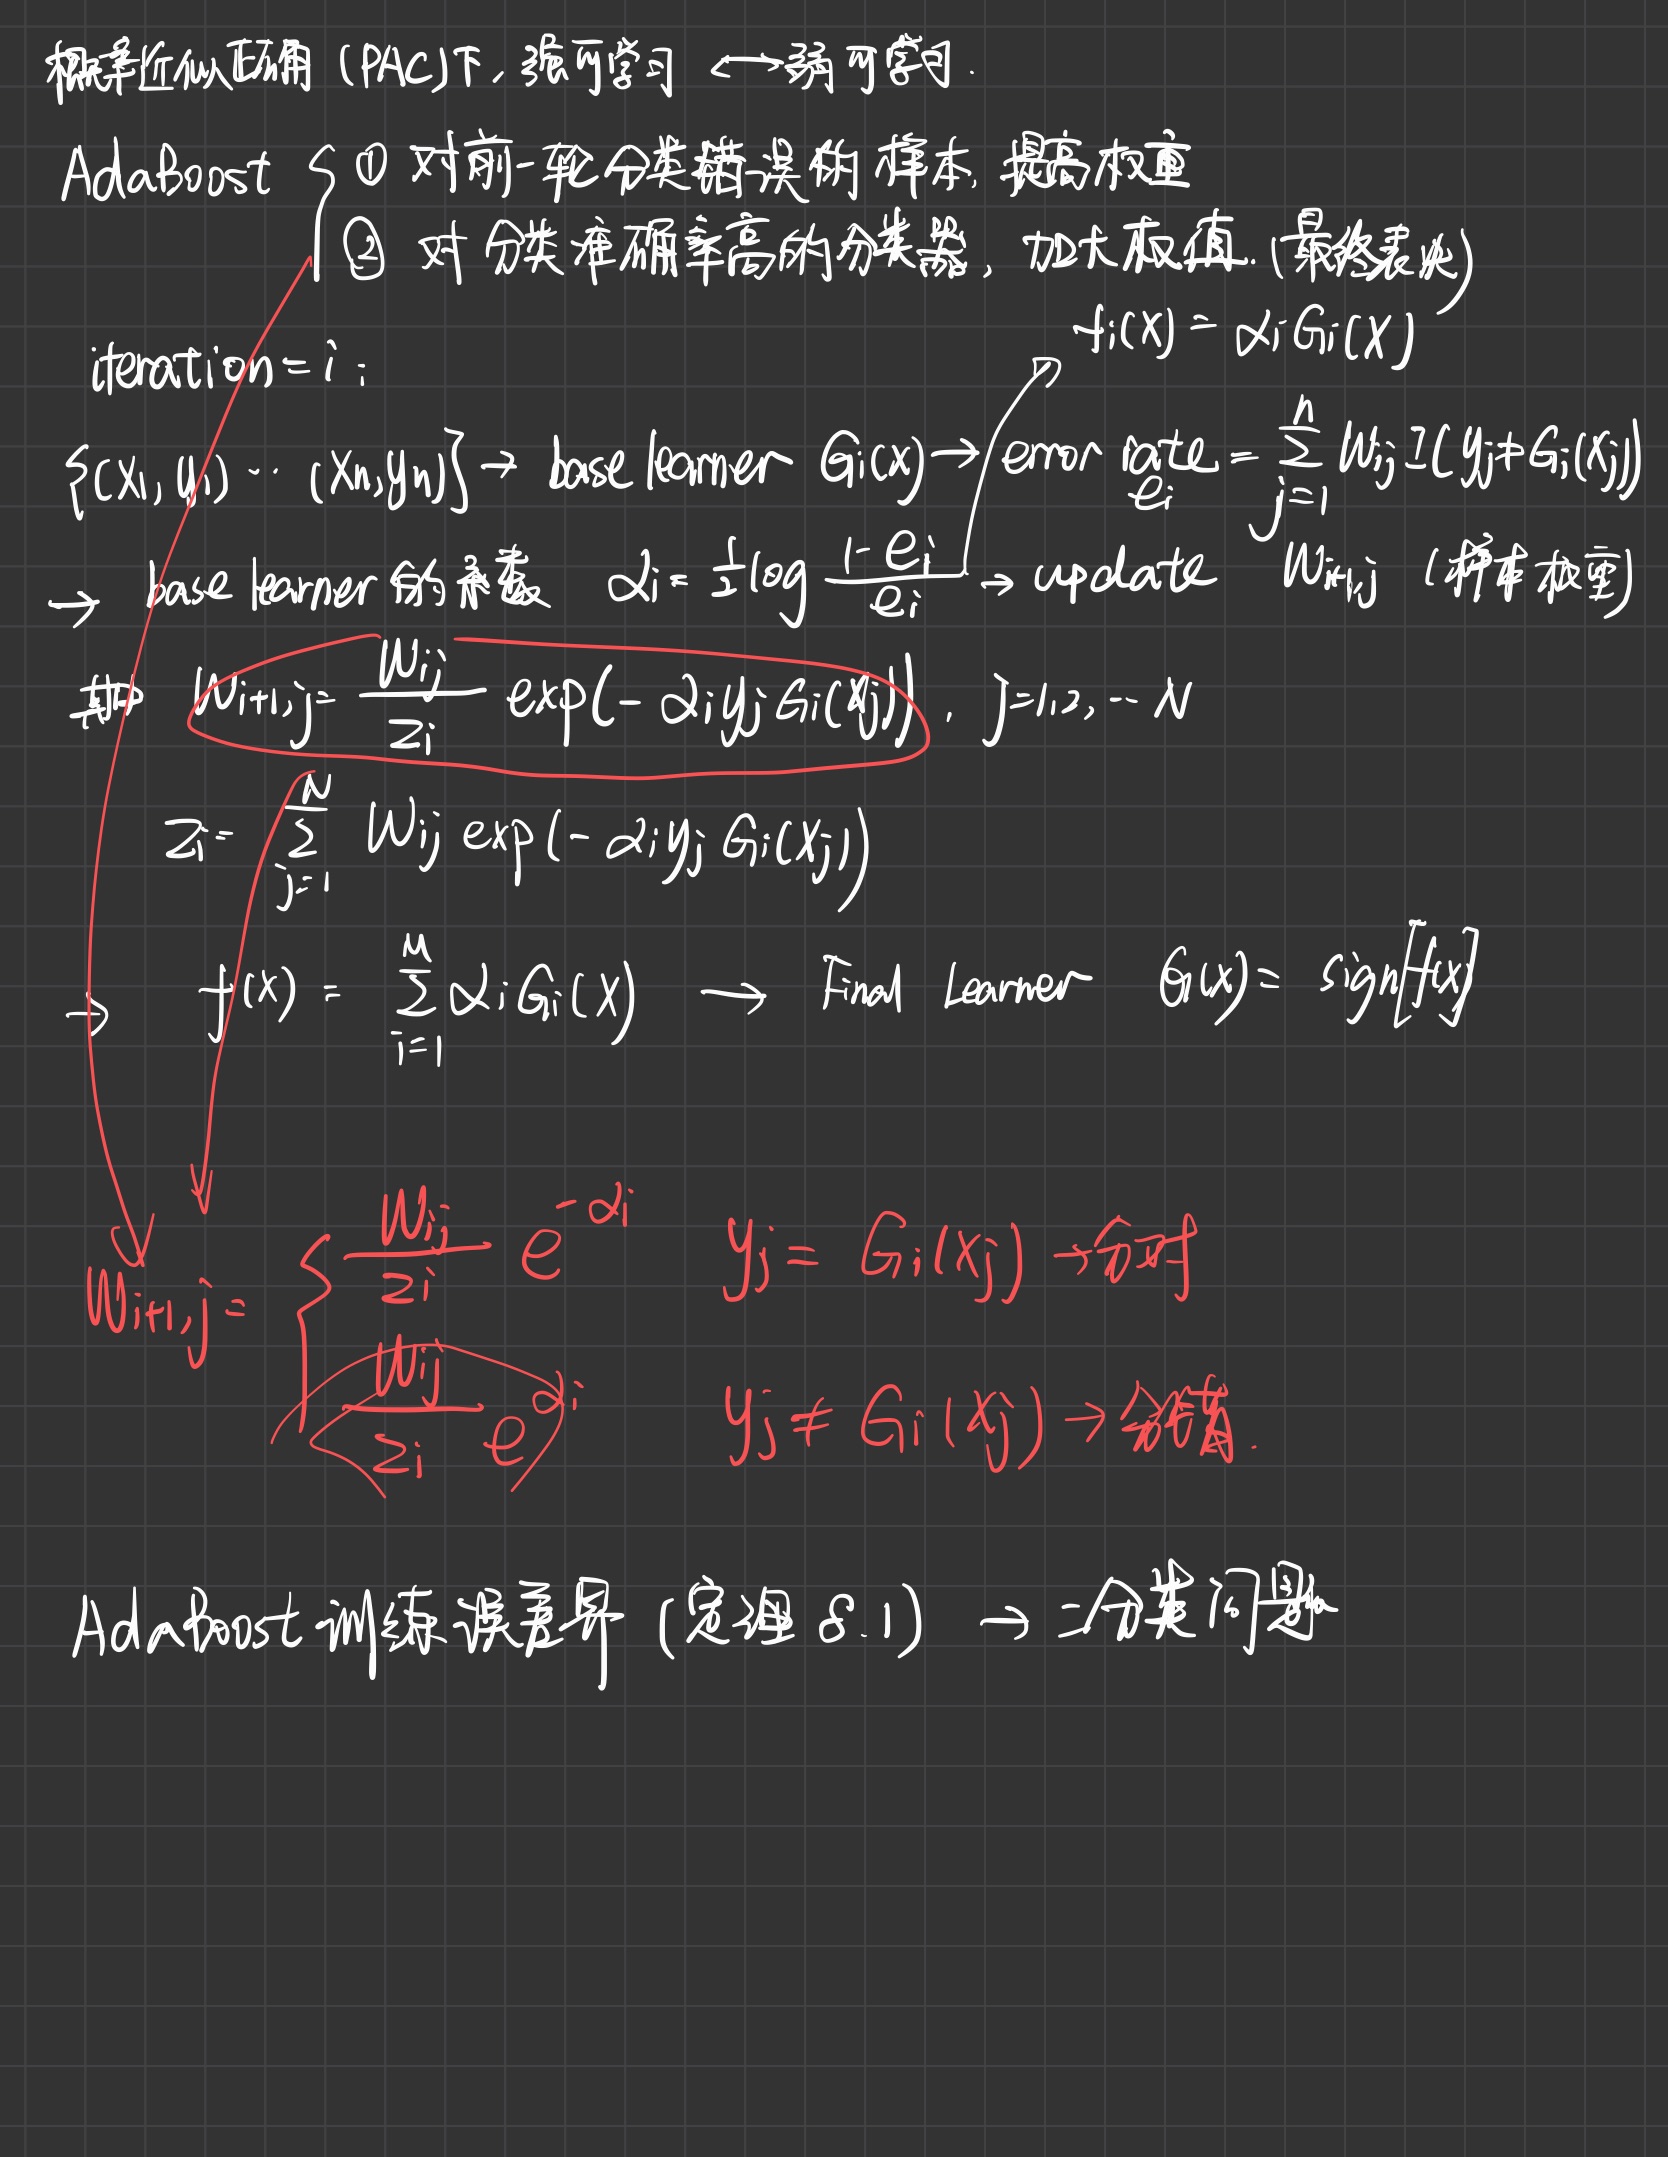 概率近似正确 (PAC)下, 强可学习 ⟷ 弱可学习.
AdaBoost { ① 对前一轮分类错误的样本, 提高权重
② 对分类准确率高的分类器, 加大权值. (最终表决)
fi(x) = αi Gi(x)
iteration = i :
{(x1, y1) ... (xn, yn)} → base learner Gi(x) → error rate ei = Σ_{j=1}^{n} Wij I(yj ≠ Gi(xj))
→ base learner 的系数 αi = 1/2 log (1-ei)/ei → update Wi+1,j (样本权重)
其中 Wi+1,j = Wij/Zi exp(-αi yj Gi(xj)), j=1,2,... N
Zi = Σ_{j=1}^{N} Wij exp(-αi yj Gi(xj))
→ f(x) = Σ_{i=1}^{M} αi Gi(x) → Final Learner G(x) = sign[f(x)]
Wi+1,j = { Wij/Zi e^{-αi} yj = Gi(xj) → 分对
Wij/Zi e^{αi} yj ≠ Gi(xj) → 分错.
AdaBoost 训练误差界 (定理 8.1) → 二分类问题